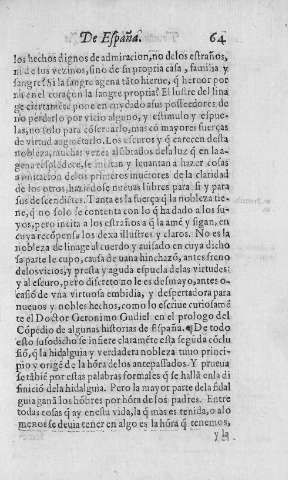 De España. 64
los hechos dignos de admiracion, no de los estraños,
ni de sus vezinos, sino de su propria casa, familia y
sangre? Si la sangre agena tãto hierue, q̃ heruor por
nã en el coraçon la sangre propria? El lustre del lina
ge ciertamẽte pone en mydado a sus posseedores de
no perderlo por vicio alguno, y estimulo y espue-
las, no solo para cõseruarlo, mas cõ mayores fuerças
de virtud augmẽtarlo. Los escuros y q̃ carecen desta
nobleza, muchas vezes alũbrados desa luz q̃ en la a-
gena resplãdece, se incitan y leuantan a hazer cosas
a imitacion de los primeros inuẽtores de la claridad
de los otros, haziẽdose nueuas lũbres para si y para
sus descendiẽtes. Tanta es la fuerça q̃ la nobleza tie
ne, q̃ no solo se contenta con lo q̃ ha dado a los su-
yos, pero incita a los estraños a q̃ la amẽ y sigan, en
cuya recõpensa los dexa illustres y claros. No es la
nobleza de linage al cuerdo y auisado en cuya dicho
sa parte le cupo, causa de vana hinchazõ, antes freno
de los vicios, y presta y aguda espuela de las virtudes:
y al escuro, pero discreto no le es desmayo, antes o-
casiõ de vna virtuosa embidia, y despertadora para
nueuos y nobles hechos, como lo escriue curiosamẽ
te el Doctor Geronimo Gudiel en el prologo del
Cõpẽdio de algunas historias de España. ¶ De todo
esto susodicho se infiere claramẽte esta segũda cõclu
siõ, q̃ la hidalguia y verdadera nobleza tuuo princi-
pio y origẽ de la hõra de los antepassados. Y prueua
se tãbiẽ por estas palabras formales q̃ se hallã en la di
finiciõ de la hidalguia. Pero la mayor parte de la fidal
guia ganã los hõbres por hõra de los padres. Entre
todas cosas q̃ ay en esta vida, la q̃ mas es tenida, o alo
menos se deuia tener en algo es la hõra q̃ tenemos,